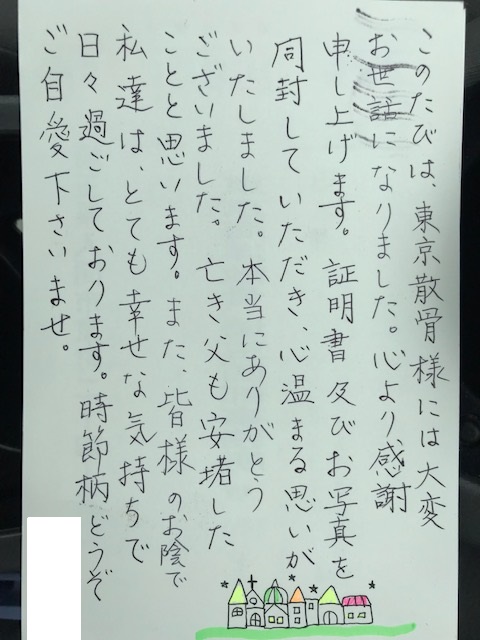 このたびは、東京散骨様には大変
お世話になりました。心より感謝
申し上げます。証明書及びお写真を
同封していただき、心温まる思いが
いたしました。本当にありがとう
ございました。亡き父も安堵した
ことと思います。また、皆様のお陰で
私達は、とても幸せな気持ちで
日々過ごしております。時節柄どうぞ
ご自愛下さいませ。